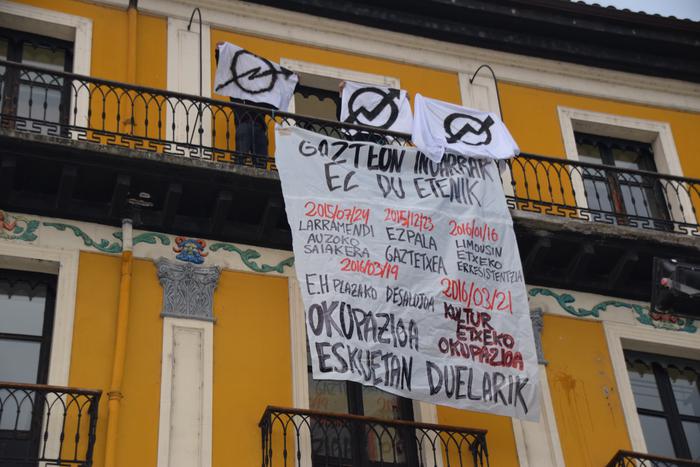 GAZTEON INDARRAK
EZ DU ETENIK
2015/07/24 2015/12/23 2016/01/16
LARRAMENDI EZPALA LIMOUSIN
AUZOKO GAZTETXEA ETXEKO
SAIAKERA ERRESISTENTZIA
2016/03/19 2016/03/21
E.H PLAZAKO DESALOJOA KULTUR
ETXEKO
OKUPAZIOA
OKUPAZIOA
ESKUETAN DUELARIK